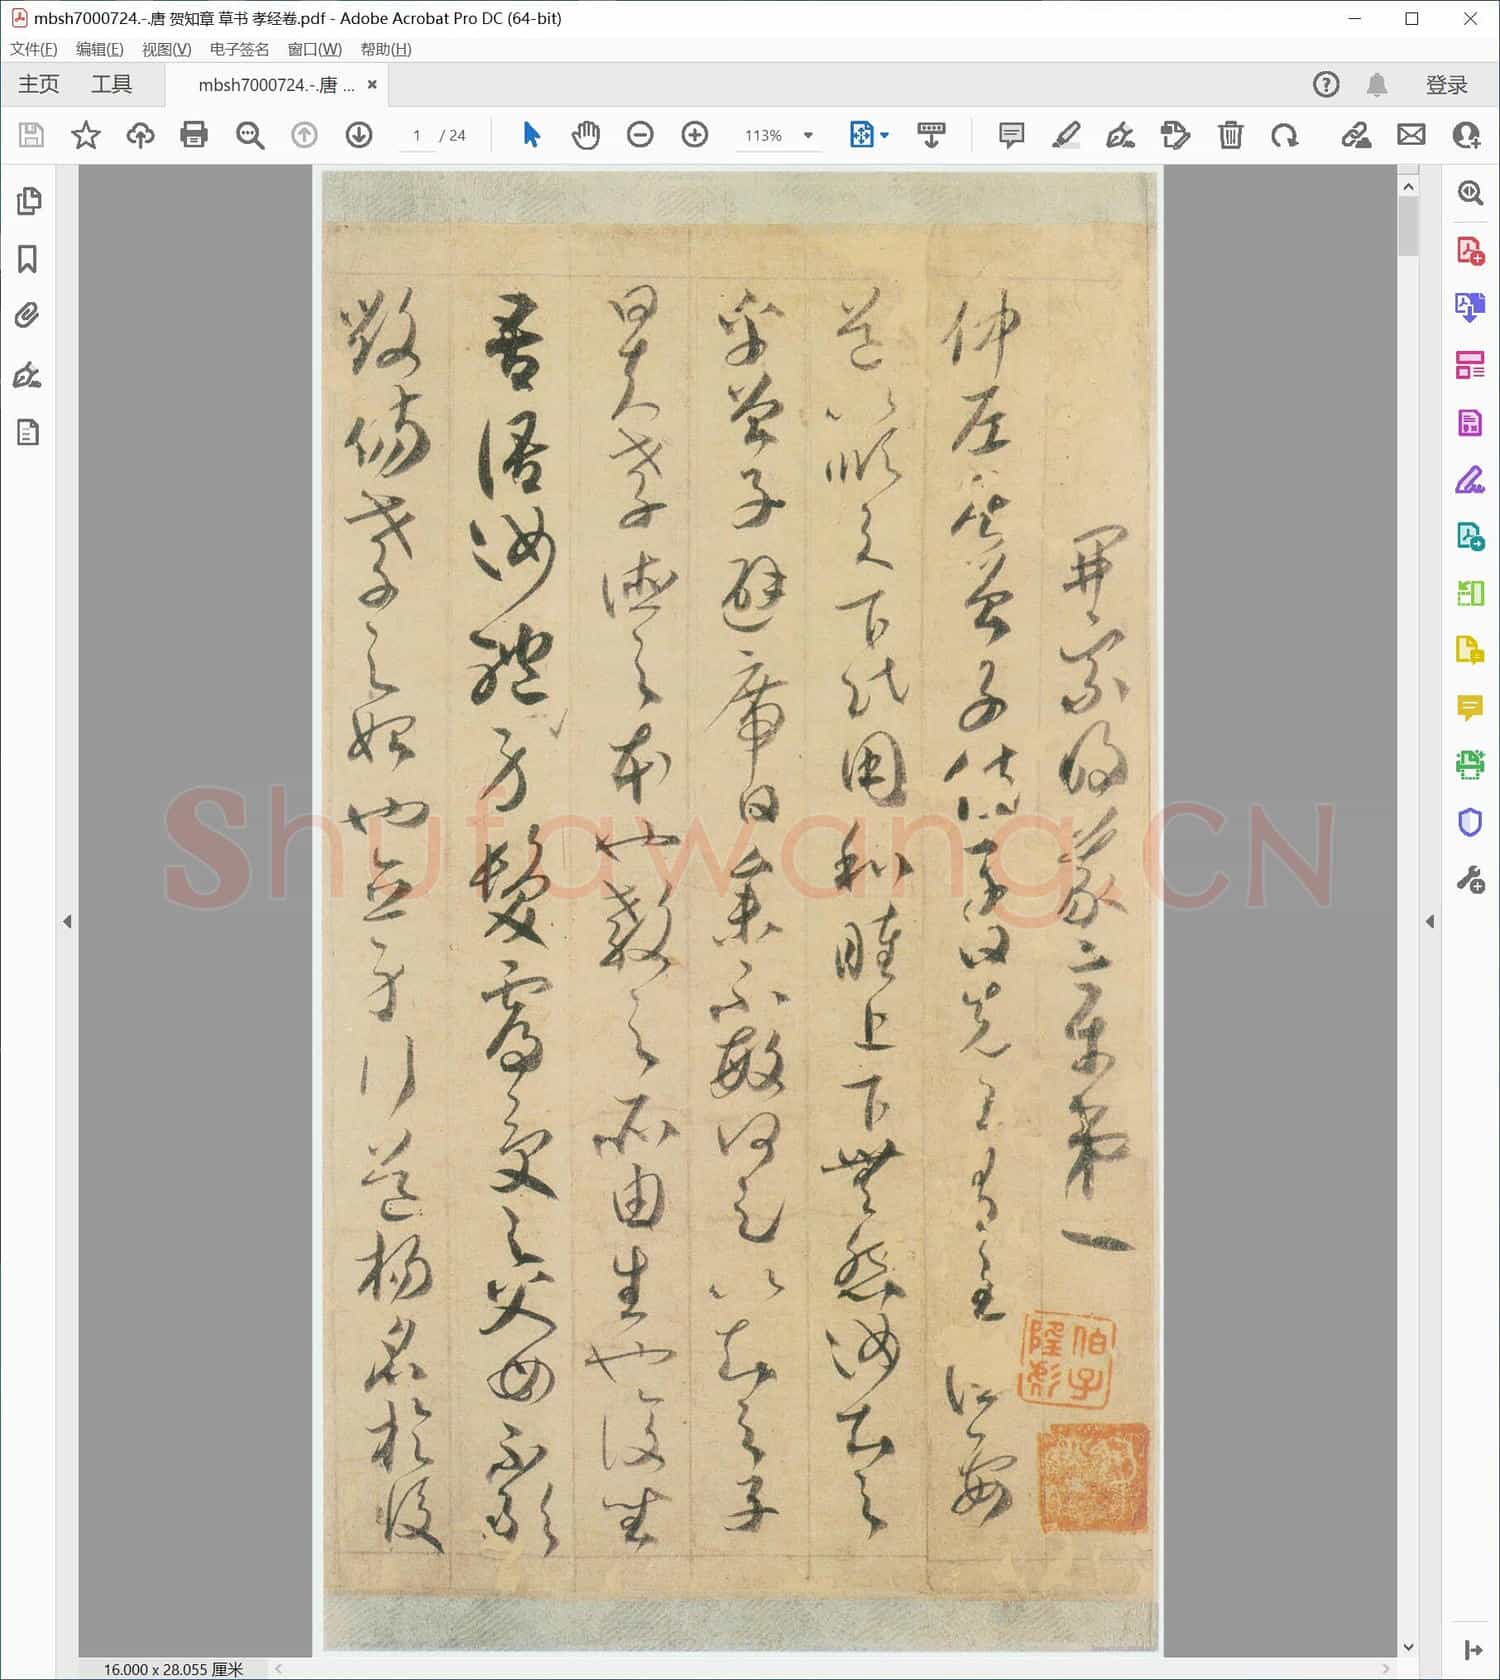 mbsh7000724.-.唐 贺知章 草书 孝经卷.pdf - Adobe Acrobat Pro DC (64-bit)
文件(F) 编辑(E) 视图(V) 电子签名 窗口(W) 帮助(H)
主页 工具 mbsh7000724.-.唐 ... 登录
1 / 24 113%
開宗明義章第一
仲尼居曾子侍子曰先王有至德要
道以順天下民用和睦上下無怨汝知之
乎曾子避席曰參不敏何足以知之子
曰夫孝德之本也教之所由生也復坐
吾語汝體身髮膚受之父母不敢
毀傷孝之始也立身行道揚名於後
Shufawang.CN
16.000 x 28.055 厘米